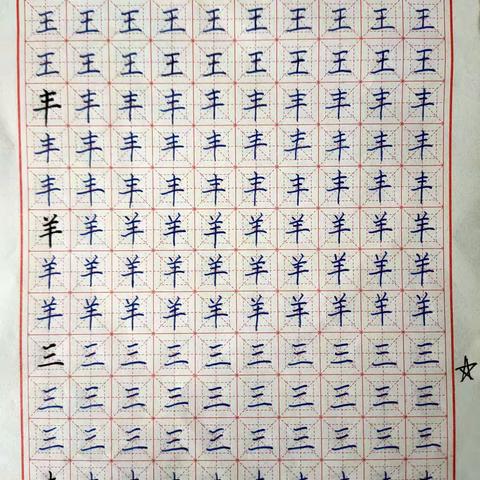 王王王王王王王王王王
王王王王王王王王王王
丰丰丰丰丰丰丰丰丰丰
丰丰丰丰丰丰丰丰丰丰
丰丰丰丰丰丰丰丰丰丰
羊羊羊羊羊羊羊羊羊羊
羊羊羊羊羊羊羊羊羊羊
羊羊羊羊羊羊羊羊羊羊
三三三三三三三三三三
三三三三三三三三三三
三三三三三三三三三三